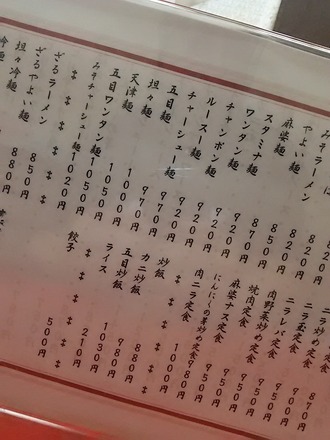 そラーメン 820円
やよい麺 820円
麻婆麺 820円
スタミナ麺 850円
ワンタン麺 870円
チャンポン麺 920円
ルースー麺 920円
チャーシュー麺 920円
五目麺 970円
坦々麺 970円
天津麺 1000円
五目ワンタン麺 1050円
みそチャーシュー麺 1020円
ざるラーメン 850円
ざるやよい麺 880円
坦々冷麺
冷麺
ニラ炒め定食 870円
ニラ玉定食
ニラレバ定食
肉野菜炒め定食 950円
焼肉定食 950円
麻婆ナス定食 950円
にんにくの芽炒め定食 950円
肉ニラ定食 1000円
炒飯 880円
カニ炒飯 980円
五目炒飯 1030円
ライス 210円
餃子 500円